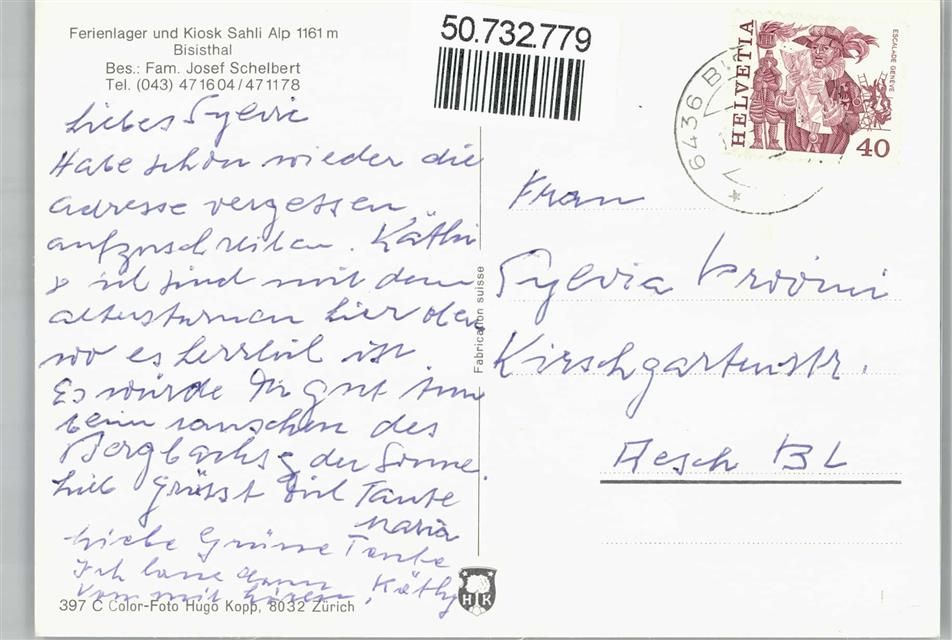 Ferienlager und Kiosk Sahli Alp 1161 m
Bisisthal
Bes.: Fam. Josef Schelbert
Tel. (043) 471604/471178
50.732.779
HELVETIA
ESCALADE GENÈVE
40
6436 BI
Liebes Sylvie
Habe schon wieder die
Adresse vergessen
aufzuschreiben. Käthi
& ich sind mit dem
altersturnen hier oben
wo es herrlich ist
Es würde Dir gut tun
beim rauschen des
Bergbachs & der Sonne.
Grüsst Dich Tante
Maria
Liebe Grüsse Tante
Ich lasse dann
von mir hören. Käthy
Fabrication suisse
Frau
Sylvia
Kirschgartenstr.
Aesch BL
397 C Color-Foto Hugo Kopp, 8032 Zürich
H K